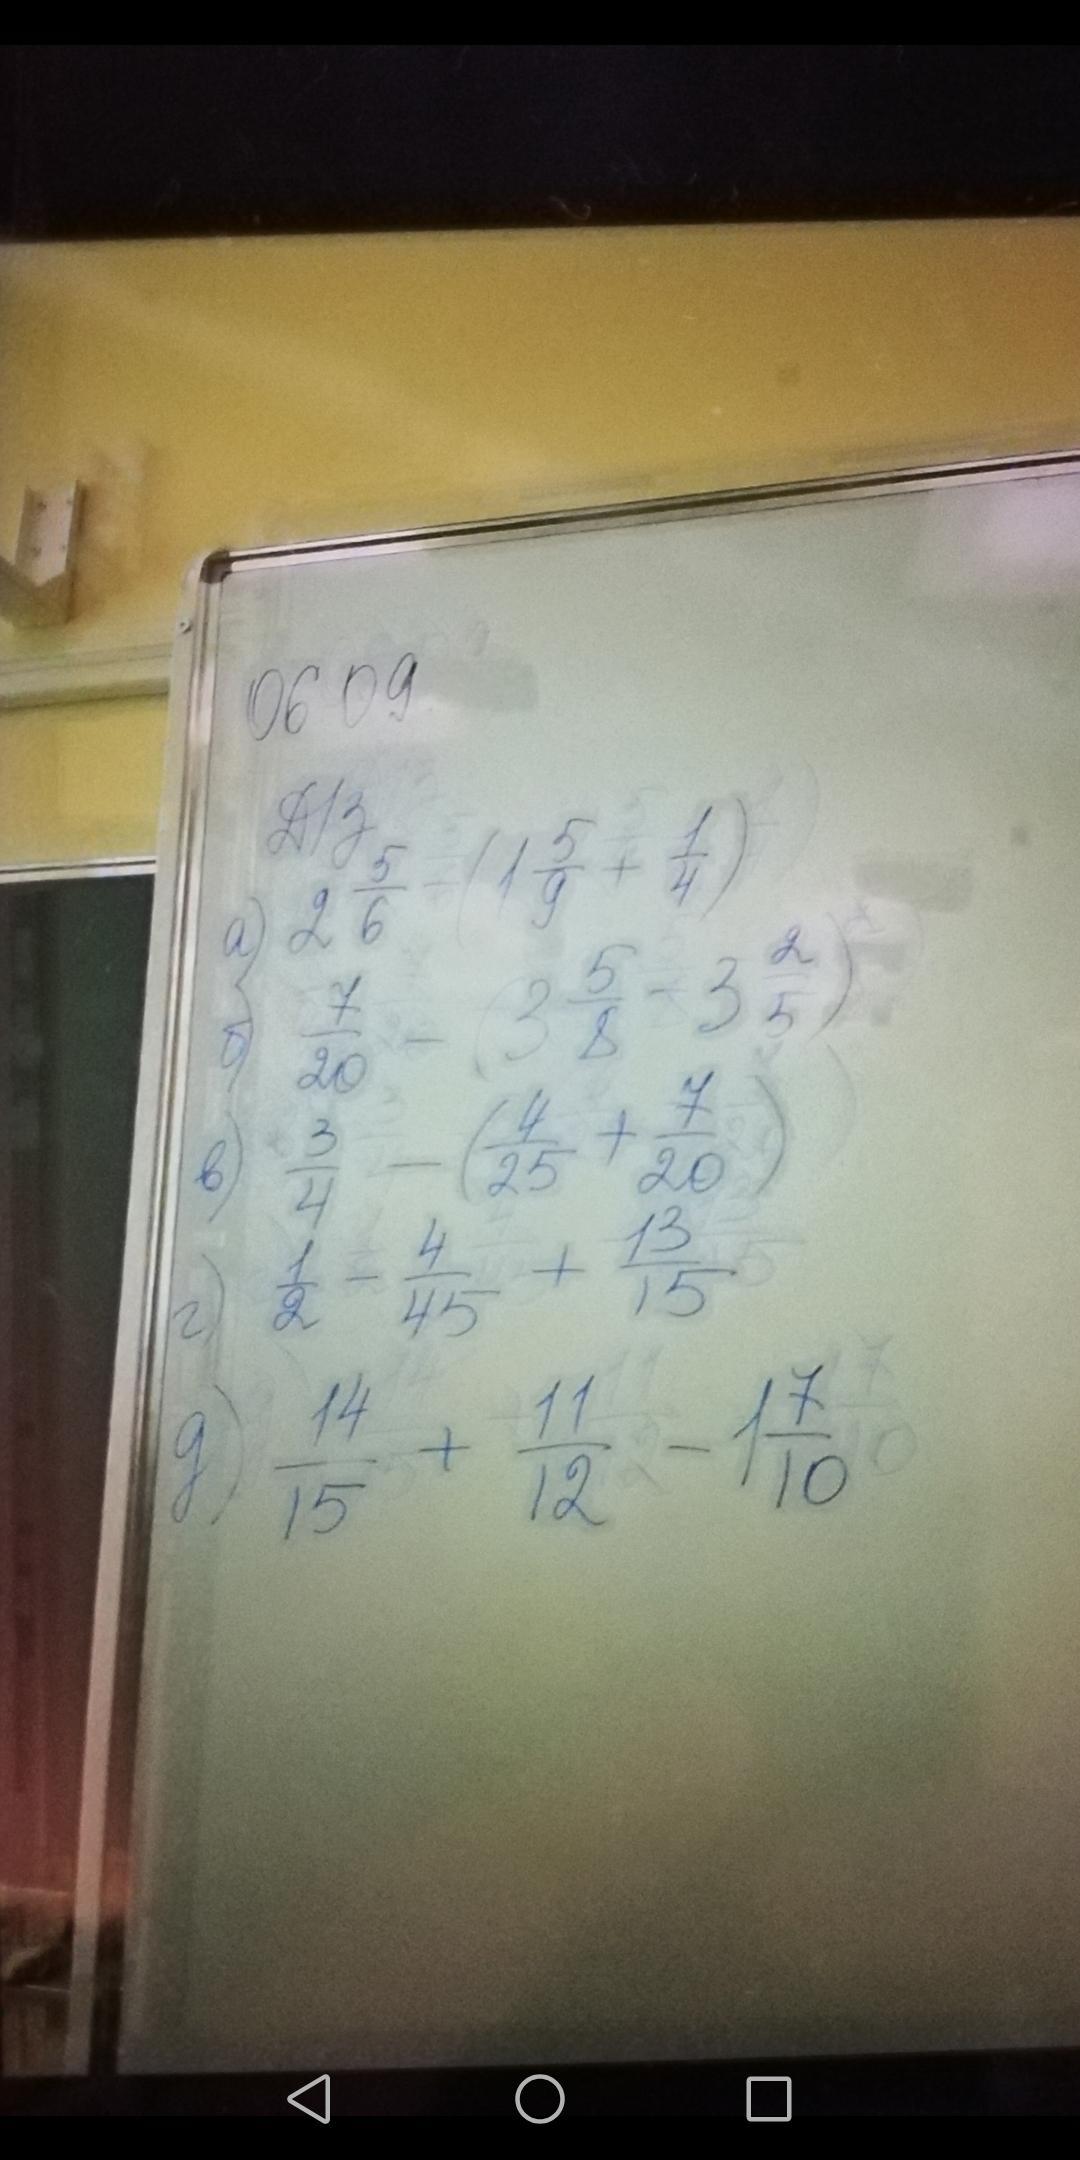 06 09
Д/з
а) 2 5/6 - (1 5/9 + 1/4)
б) 7/20 - (3 5/8 - 3 2/5)
в) 3/4 - (4/25 + 7/20)
г) 1/2 - 4/45 + 13/15
д) 14/15 + 11/12 - 1 7/10